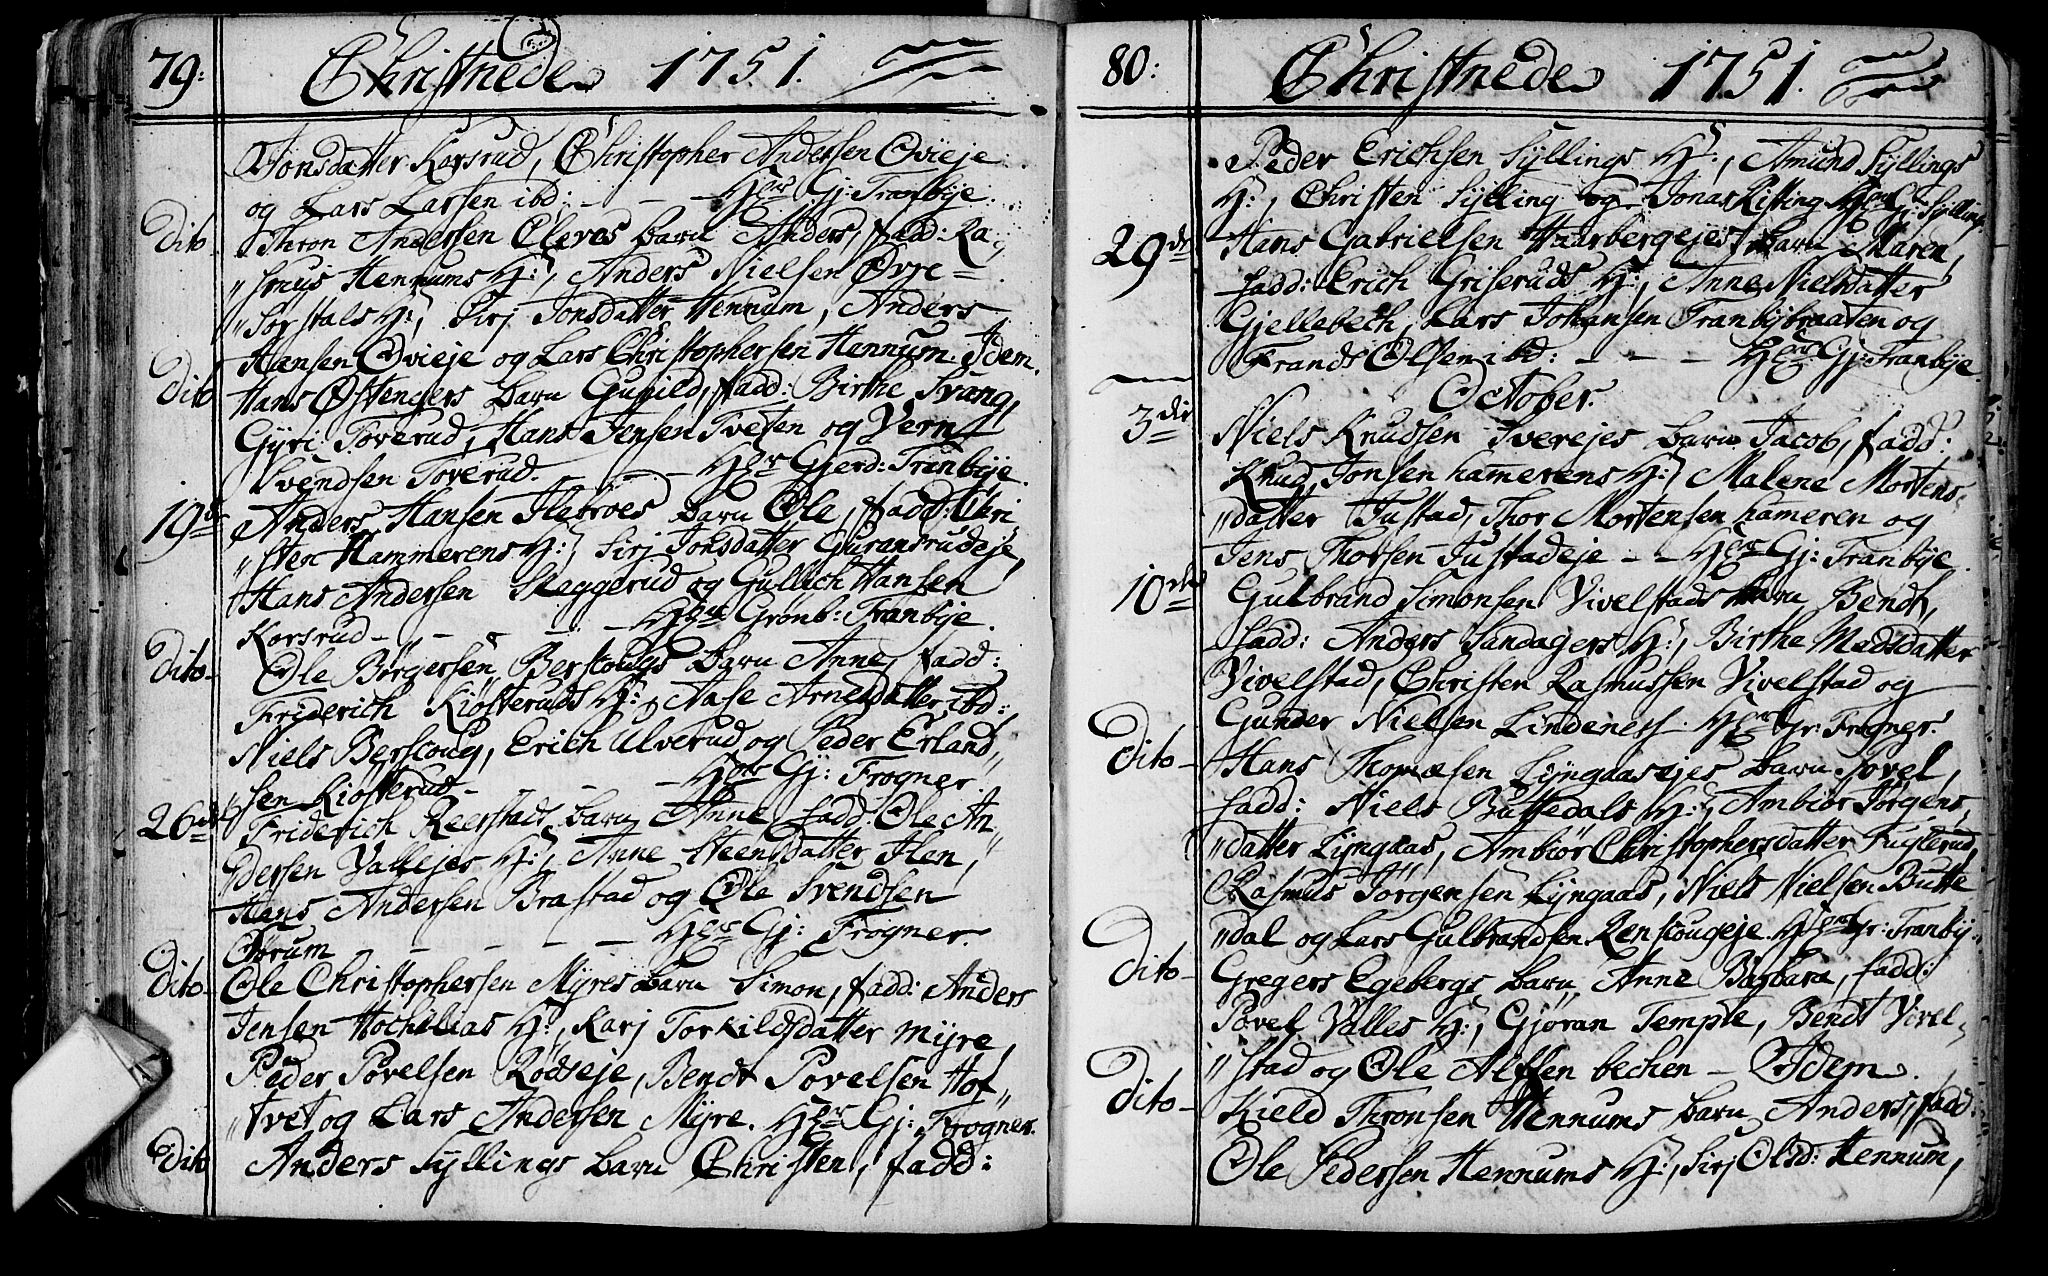 79:
Christnede 1751.
Jonsdatter Korsrud, Christopher Andersen Ovieje
og Lars Larsen ibd: - - - Hier Gj: Tranbye.
Dito Thron Andersen Eleves barn Anders, fadd: Ra-
"smus Hennums H:, Anders Nielsen Øvre-
"Sørstals H:, Sirj Jonsdatter Hennum, Anders
Hansen Ovieje og Lars Christophersen Hennum. Idem.
Dito Hans Østengers barn Gunild, fadd: Birthe Svang,
Gyri Toverud, Hans Jensen Tveten og Vern
Svendsen Toverud. - - Hier Gjerd: Tranbye.
19de Anders Hansen Flatroes barn Ole, fadd: Chri-
"sten Hammerens H:, Sirj Jonsdatter Guransrudeje,
Hans Andersen Skaggerud og Gullich Hansen
Korsrud - - - - - Hier Gronb: Tranbye.
Dito- Ole Børgersen Berskougs barn Anne, fadd:
Friderich Kiøsteruds H:, Aase Arnesdatter ibd:
Niels Berscoug, Erich Ulverud og Peder Erland,"
sen Kiøsterud - - - Hier Gj: Frogner.
26de Friderich Reerstads barn Anne, fadd: Ole An-
dersen Vallejes H:, Anne Steensdatter Flen,"
Hans Andersen Brastad og Ole Svendsen
Ørum - - - - Hier Gj: Frogner.
Dito- Ole Christophersen Myres barn Simon, fadd: Anders
Jensen Hochelias H:, Karj Torkildsdatter Myre,
Peder Povelsen Rødseje, Bendt Povelsen Hof"
"tvet og Lars Andersen Myre. Hier Gj: Frogner.
Dito Anders Syllings barn Christen, fadd:
80:
Christnede 1751.
Peder Erichsen Syllings H:, Amund Syllings
H:, Christen Sylling og Jonas Kisting Hier Gj: Sylling.
29de Hans Gabrielsen Haarbergejes barn Maren,
fadd: Erich Griseruds H:, Anne Nielsdatter
Gjellebech, Lars Johansen Tranbybraaten og
Frands Olsen ibd: - - - Hier Gj: Tranbye.
October.
3die Niels Knudsen Sverejes barn Jacob, fadd:
Knud Jonsen hamerens H:, Malene Mortens-
"datter Justad, Thor Mortensen hameren og
Jens Thorsen Justadeje - - Hier Gj: Tranbye.
10de Gulbrand Simonsen Vivelstads barn Bendt,
fadd: Anders Sandagers H:, Birthe Madsdatter
Vivelstad, Christen Rasmussen Vivelstad og
Gunder Nielsen Lindenes - Hier Gr: Frogner.
Dito- Hans Thomæsen Lyngaasejes barn Povel,
fadd: Niels Buttedals H:, Ambiør Jørgens,
"datter Lyngaas, Ambiør Christophersdatter Fuglerud,
Rasmus Jørgensen Lyngaas, Niels Nielsen Butte
"dal og Lars Gulbrandsen Renskougeje. Hier Gr: Tranby:
Dito- Gregers Egebergs barn Anne Barbara, fadd:
Povel Valles H:, Gjøran Temple, Bendt Vivel-
"stad og Ole Alfsen bechen - Idem.
Dito- Kield Thronsen Hennums barn Anders, fadd:
Ole Pedersen Hennums H:, Sirj Olsd: Hennum,